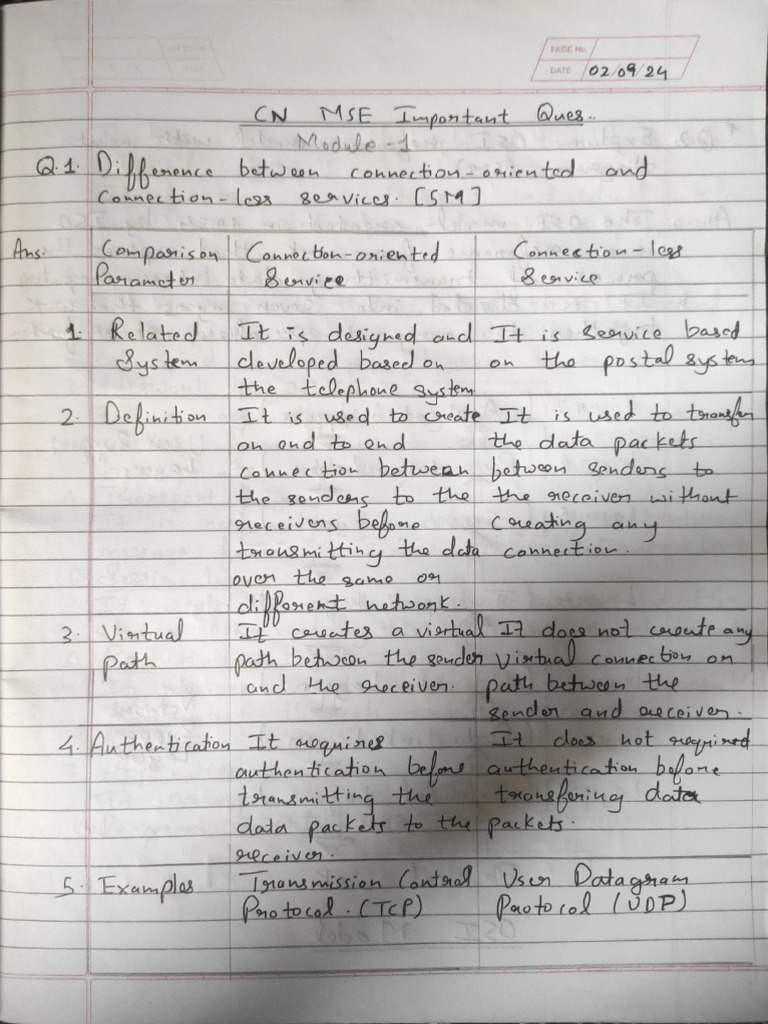 PAGE No.
DATE 02/09/24
CN MSE Important Ques..
Module-1
Q.1. Difference between connection-oriented and
connection-less services. [5M]
Ans: Comparison Connection-oriented Connection-less
Parameter Service Service
1. Related It is designed and It is service based
System developed based on on the postal system
the telephone system
2. Definition It is used to create It is used to transfer
an end to end the data packets
connection between between senders to
the senders to the the receiver without
receivers before creating any
transmitting the data connection.
over the same or
different network.
3. Virtual It creates a virtual It does not create any
path path between the sender virtual connection or
and the receiver. path between the
sender and receiver.
4. Authentication It requires It does not required
authentication before authentication before
transmitting the transfering data
data packets to the packets.
receiver.
5. Examples Transmission Control User Datagram
Protocol. (TCP) Protocol (UDP)